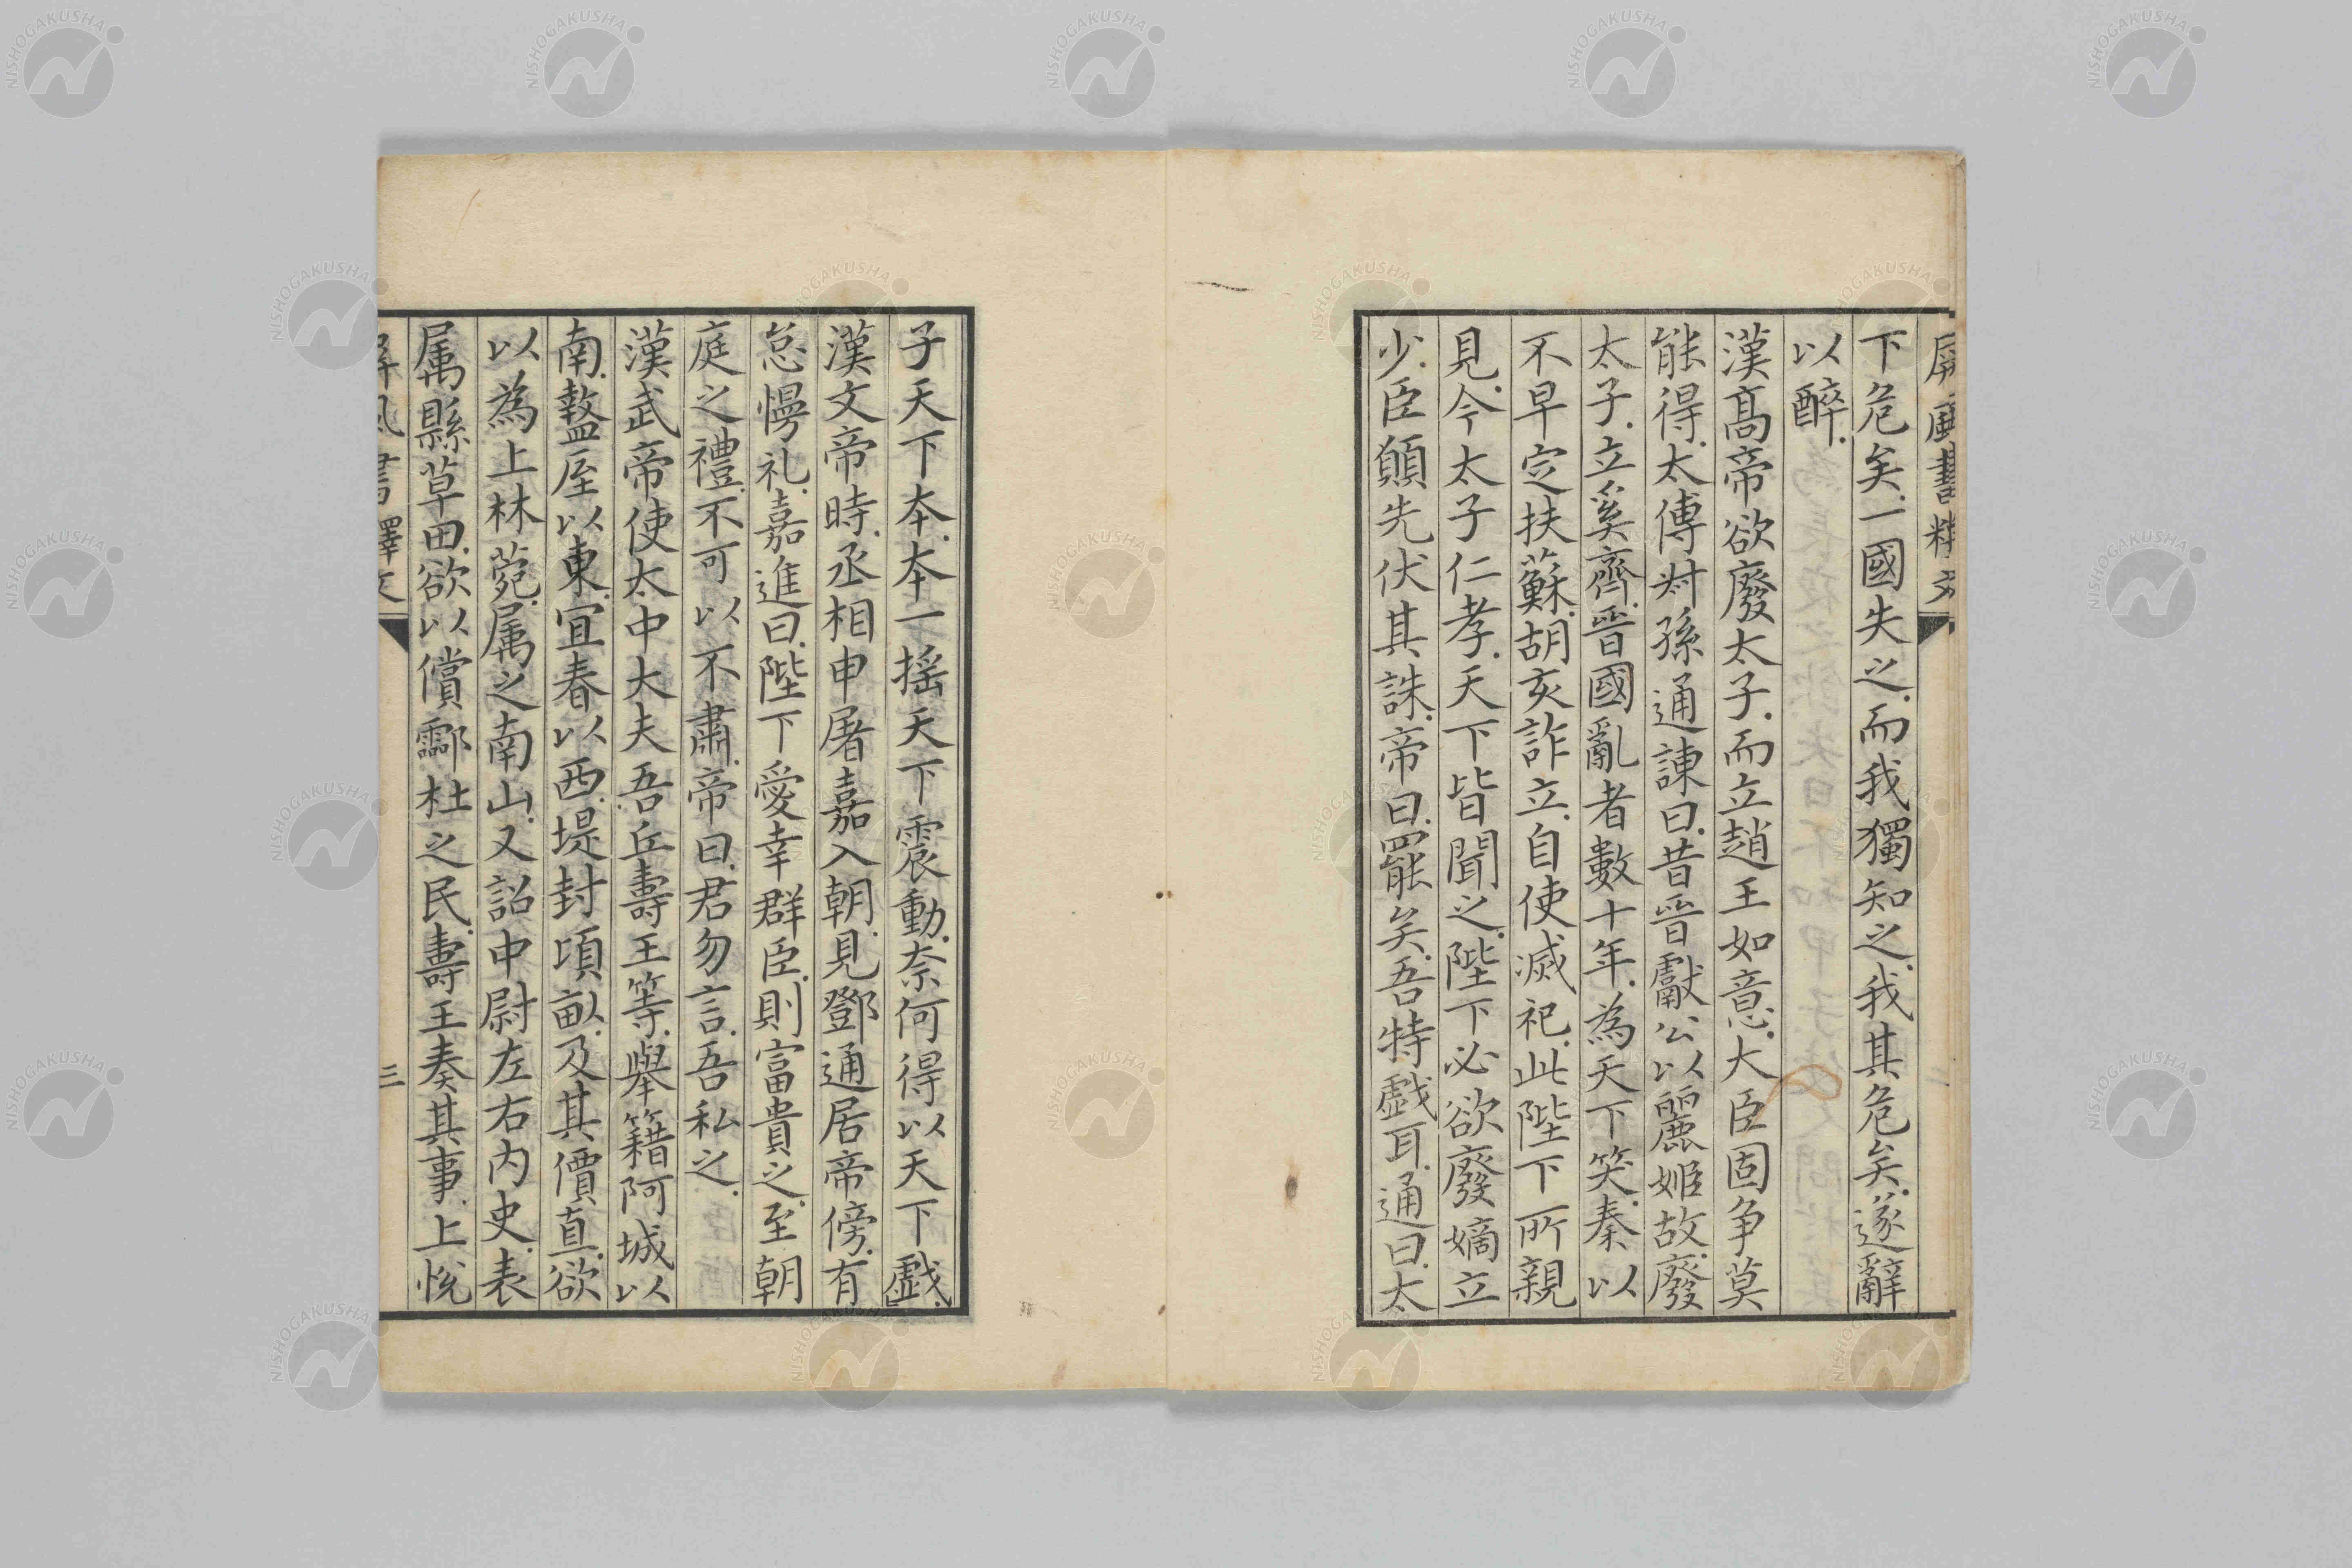 屏風書釋文
下危矣.一國失之.而我獨知之.我其危矣.遂辭
以醉.
漢髙帝欲廢太子.而立趙王如意.大臣固争莫
能得.太傅尗孫通諌曰.昔晉獻公以麗姫故.廢
太子.立奚齊.晉國亂者數十年.為天下笑.秦以
不早定扶蘇.胡亥詐立.自使滅祀.此陛下所親
見.今太子仁孝.天下皆聞之.陛下必欲廢嫡立
少.臣願先伏其誅.帝曰.罷矣.吾特戯耳.通曰.太
子天下夲.夲一揺天下震動.柰何得以天下戯.
漢文帝時.丞相申屠嘉入朝.見鄧通居帝傍.有
怠慢礼.嘉進曰.陛下愛幸群臣.則富貴之.至朝
庭之禮.不可以不肅.帝曰.君勿言.吾私之.
漢武帝使太中大夫吾丘壽王等.舉籍阿城以
南.盩厔以東.宜春以西.堤封頃畝.及其價直.欲
以為上林菀.属之南山.又詔中尉左右内史.表
属縣草田.欲以償鄠杜之民.壽王奏其事.上悅
屏風書釋文
三
NISHOGAKUSHA